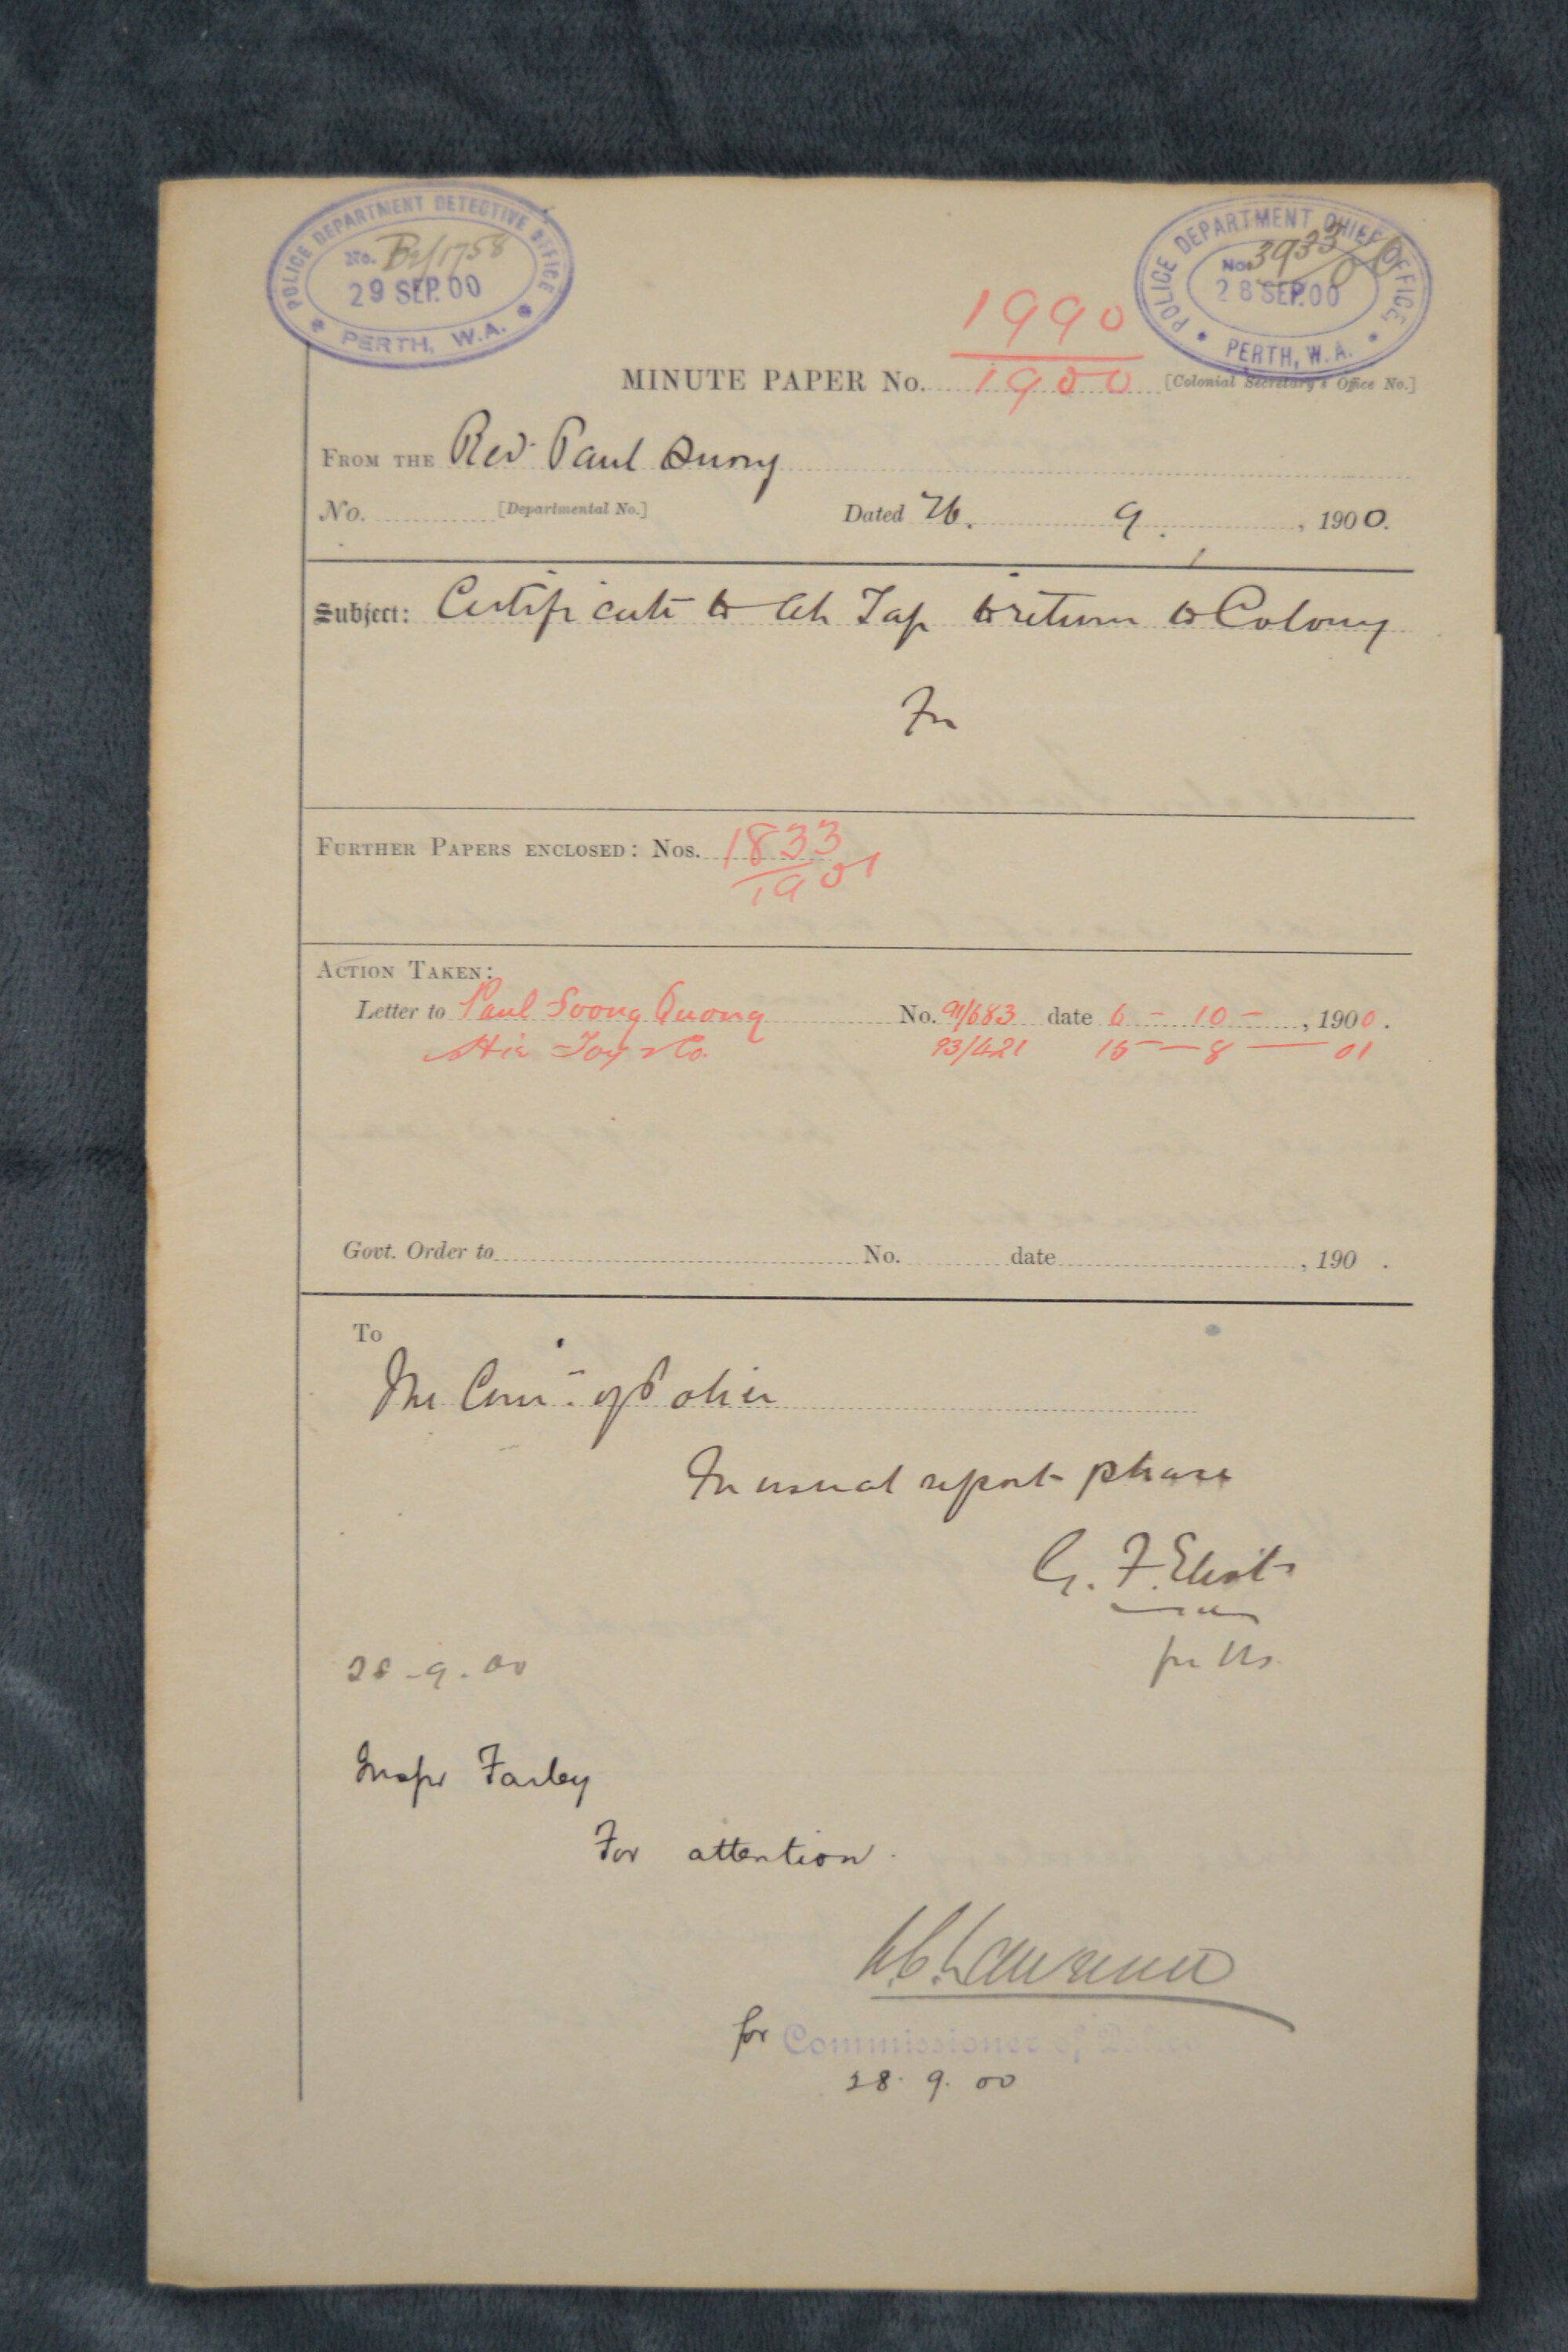 POLICE DEPARTMENT DETECTIVE OFFICE
No. B2/1758
29 SEP. 00
PERTH, W.A.
POLICE DEPARTMENT CHIEF OFFICE,
No. 3933/00
28 SEP. 00
PERTH, W.A.
1990
MINUTE PAPER No. 1900 [Colonial Secretary's Office No.]
FROM THE Rev. Paul
No. [Departmental No.] Dated 26. 9. , 1900.
Subject: Certificate to Ah Tap to return to Colony
FURTHER PAPERS ENCLOSED: Nos. 1833
1901
ACTION TAKEN:
Letter to Paul Soong Quong No. 91/683 date 6 - 10 - , 1900.
93/421 15 - 8 - 01
Govt. Order to No. date , 190 .
To
The Comr. of Police
usual report please
G. F. Eliot
28-9-00
Inspr Farley
For attention.
Lawrence
for Commissioner of Police
28. 9. 00